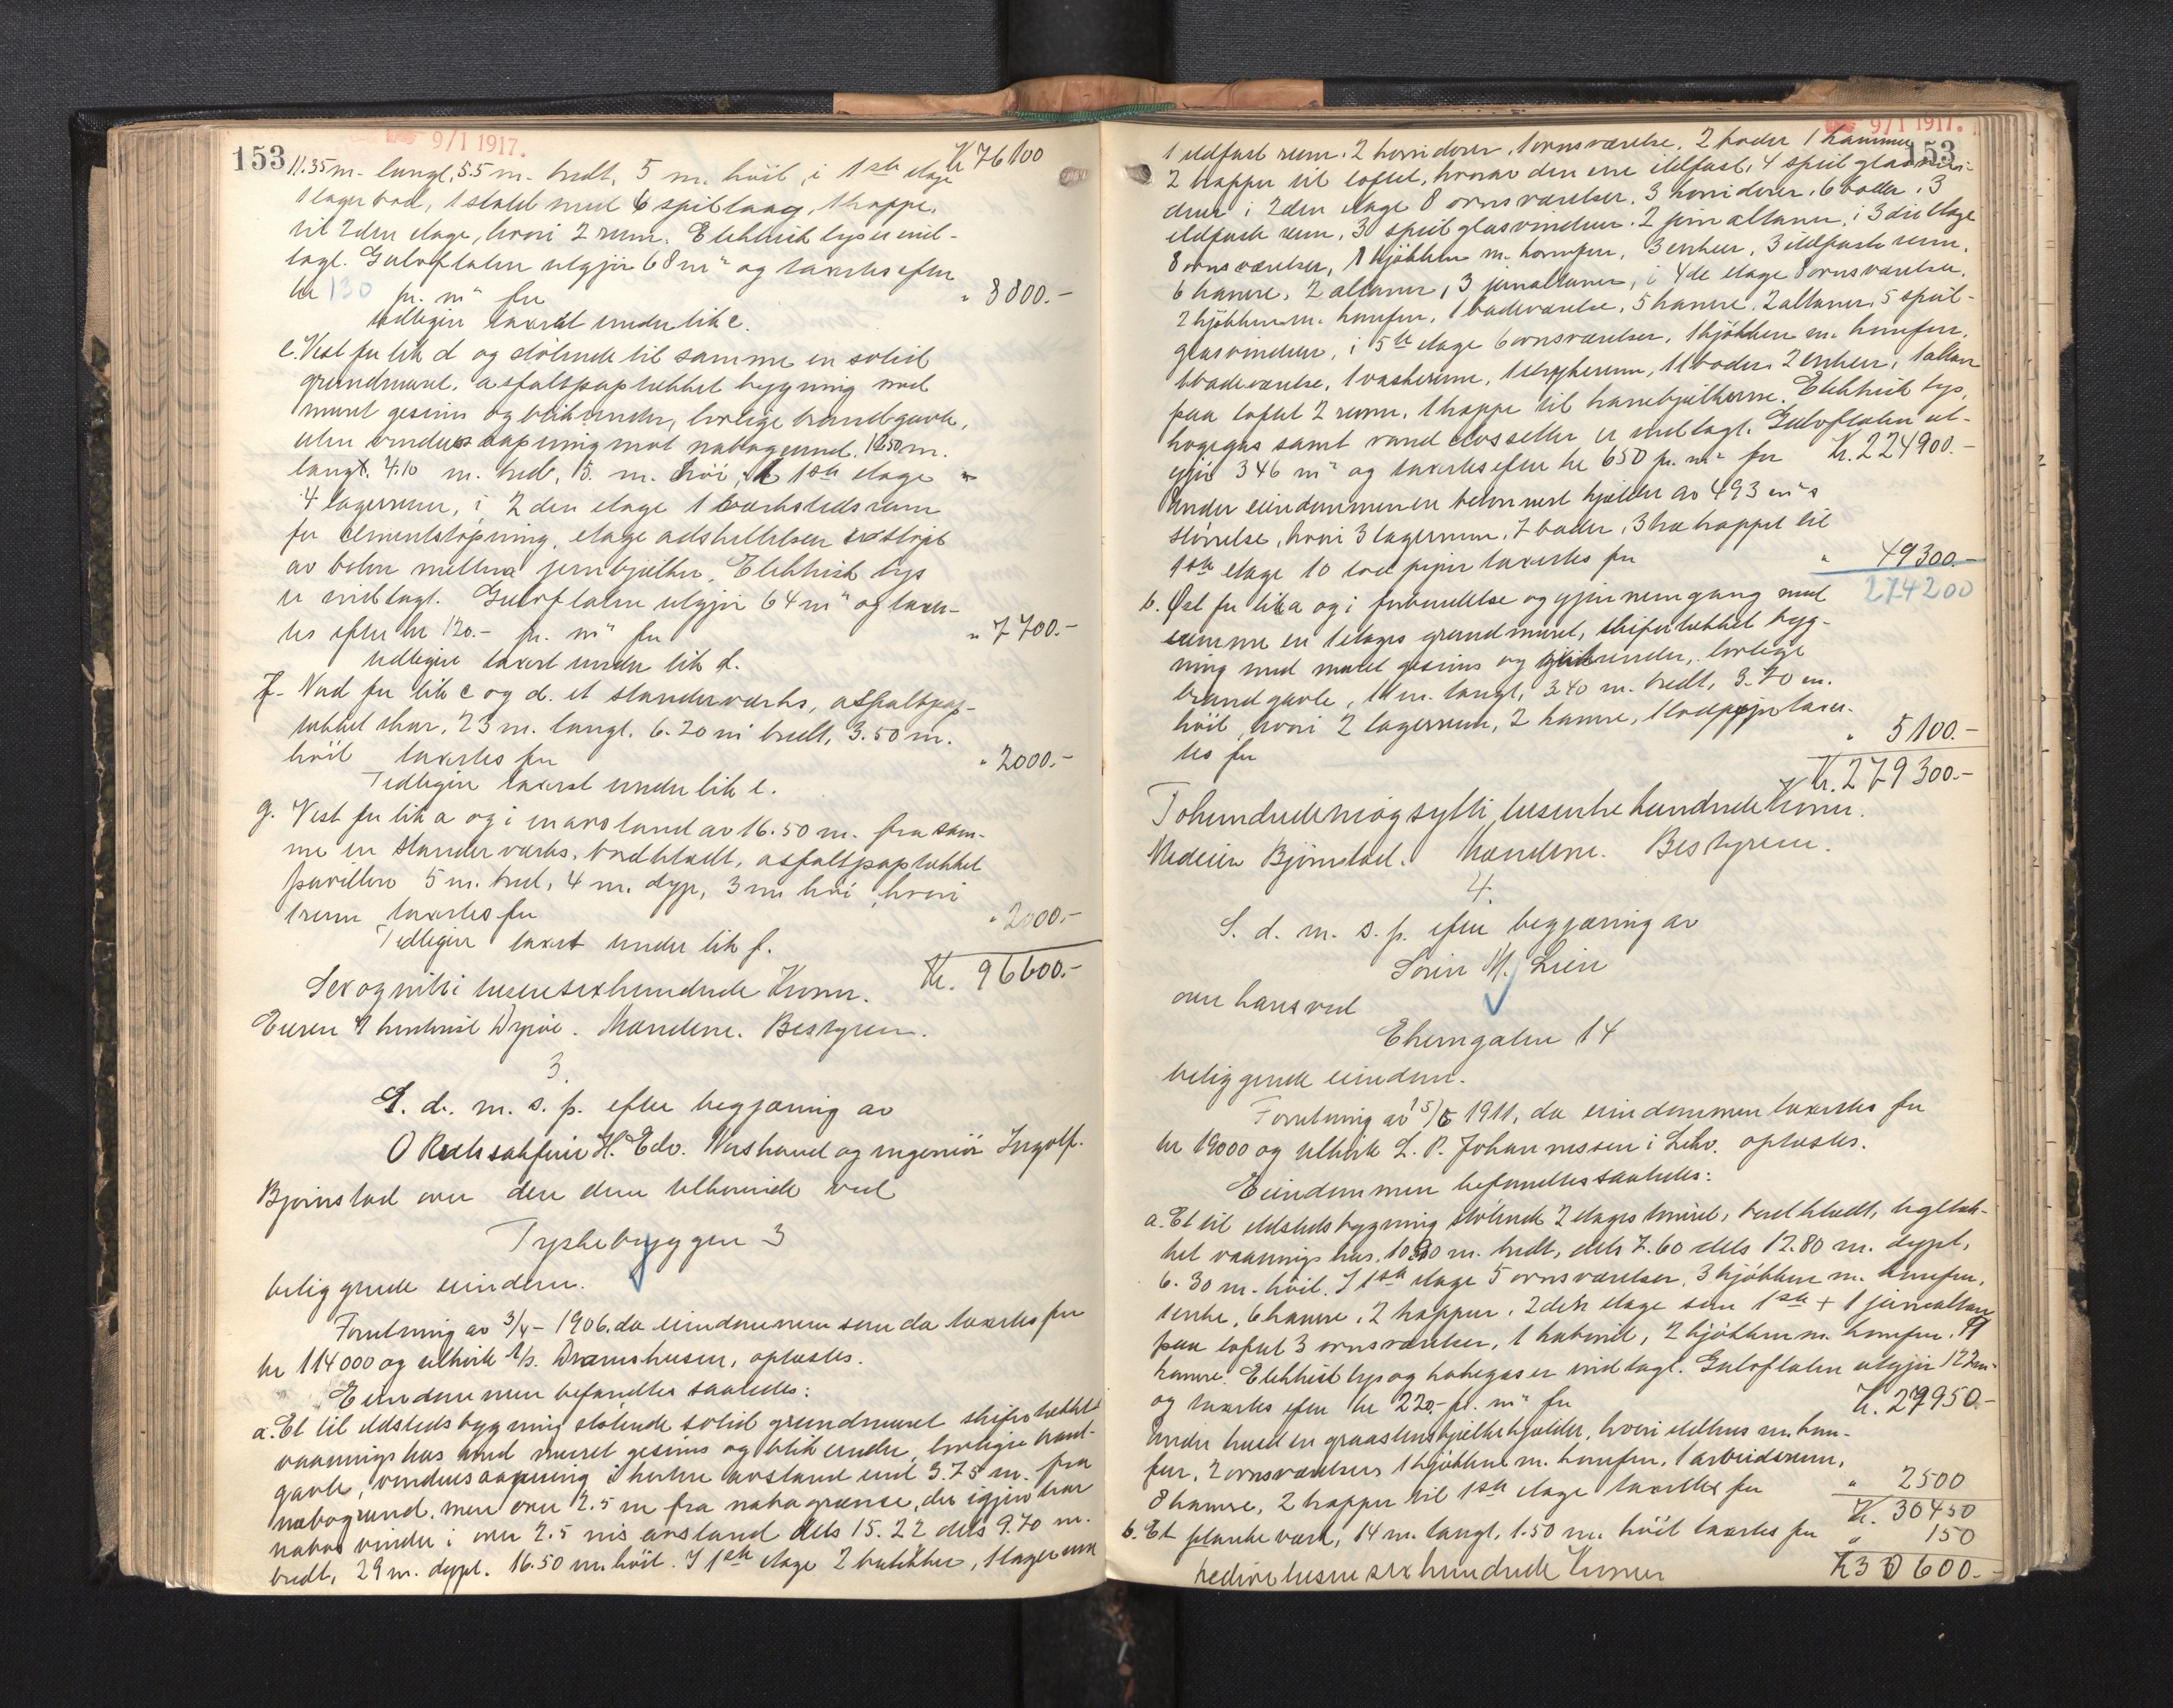 9/1 1917.
153
Kr 76100
11.35 m. langt, 5.5 m. bredt, 5 m. höit, i 1ste etage
1 lagerbod, 1 stald med 6 spiltaug, 1 trappe,
til 2den etage, hvori 2 rum. Elektrisk lys er ind-
lagt. Gulvflaten utgjör 68 m² og taxertes efter
kr 130 pr. m² for " 8800.-
tidligere taxert under litr e.
e. Vest for litr d og stötende til samme en solid
grundmuret, asfaltpaptækket bygning med
muret gesims og blikrender, lovlige brandgavle,
uten vinduesaapning mot nabogrund, 12.50 m.
langt, 4.10 m. bred, 5. m. höi, i 1ste etage
4 lagerrum, i 2den etage 1 værkstedsrum
for cementstöpning, etage adskillelsen er stöpt
av beton mellem jernbjælker. Elektrisk lys
er indlagt. Gulvflaten utgjör 64 m² og taxer-
tes efter kr 120.- pr. m² for " 7700.-
tidligere taxert under litr d.
f. Nord for litr c og d. et standerverks, asfaltpap-
tækket skur, 23 m. langt, 6.20 m bredt, 3.50 m.
höit taxertes for " 2000.-
Tidligere taxert under litr e.
g. Vest for litr a og i en avstand av 16.50 m. fra sam-
me en standerværks, bordklædt, asfaltpaptækket
pavillon 5 m. bred, 4 m. dyp, 3 m höi, hvori
1 rum taxertes for " 2000.-
Tidligere taxert under litr f.
Kr. 96600.-
Sex og nitti tusensexhundrede Kroner.
Eieren v/ Dyröe. Mændene. Bestyreren.
3.
S. d. m. s. p. efter begjæring av
O Retssakförer H. Edv. Vershavd og ingeniör Ingolf
Björnstad over den dem tilhörende ved
Tyskebryggen 3
beliggende eiendom.
Forretning av 3/4 - 1906, da eiendommen som da taxertes for
kr 114000 og tilhörte A/S. Dramshusen, oplæstes.
Eiendommen befandtes saaledes:
a. Et til ildstedsbygning stötende solid grundmuret skifertækket
vaaningshus med muret gesims og blikrender, lovlige brand-
gavle, vinduesaapning i kortere avstand end 3.75 m. fra
nabogrund, men over 2.5 m fra nabogrænse, der igjen har
nabos vindu i over 2.5 ms avstand dels 15.22 dels 9.70 m.
bredt, 29 m. dypt. 16.50 m. höit. I 1ste etage 2 butikker, 1 lagerrum
9/1 1917.
153
1 ildfast rum, 2 korridorer, 1 ovnsværelse, 2 boder 1 kammer
2 trapper til loftet, hvorav den ene ildfast, 4 speilglasvin-
duer i 2den etage 8 ovnsværelser, 3 korridorer, 6 boder, 3
ildfaste rum, 3 speilglasvinduer. 2 jernaltaner, i 3die etage
8 ovnsværelser, 1 kjökken m. komfur, 3 entreer, 3 ildfaste rum,
6 kamre, 2 altaner, 3 jernaltaner, i 4de etage 8 ovnsværelser,
2 kjökken m. komfur, 1 badeværelse, 5 kamre, 2 altaner, 5 speil-
glasvinduer, i 5te etage 6 ovnsværelser, 1 kjökken m. komfur,
1 badeværelse, 1 vaskerum, 1 strykerum, 11 boder, 2 entreer, 1 altan
paa loftet 2 rum, 1 trappe til hanebjælkerne. Elektrisk lys,
kogegas samt vandclosetter er indlagt. Gulvflaten ut-
gjör 346 m² og taxertes efter kr 650 pr. m² for Kr. 224900.-
Under eiendommen en betonneret kjælder av 493 m²s
störrelse, hvori 3 lagerrum, 7 boder, 3 træ trapper til
1ste etage 10 lodpiper taxertes for " 49300.-
274200
b. Öst for litr a og i forbindelse og gjennemgang med
samme en 1 etages grundmuret, skifertækket byg-
ning med muret gesims og blikrender, lovlige
brandgavle, 11 m. langt, 3.40 m. bredt, 3.70 m.
höit, hvori 2 lagerrum, 2 kamre, 1 lodpipe taxer-
tes for " 5100.-
Kr. 279300.-
Tohundredeniogsytti tusentrehundrede Kroner.
Medeier Björnstad. Mændene. Bestyreren.
4.
S. d. m. s. p. efter begjæring av
Sören M. Lien
over hans ved
Ekremgaten 14
beliggende eiendom.
Forretning av 15/5 1911, da eiendommen taxertes for
kr 19000 og tilhörte L. P. Johannessen i Lekv. oplæstes.
Eiendommen befandtes saaledes:
a. Et til ildstedsbygning stötende 2 etages tömret, bordklædt, tegltæk-
ket vaaningshus, 10.80 m. bredt, dels 7.60 dels 12.80 m. dypt,
6.30 m. höit. I 1ste etage 5 ovnsværelser, 3 kjökken m. komfur,
entre, 6 kamre, 2 trapper. 2den etage som 1ste + 1 jernaltan
paa loftet 3 ovnsværelser, 1 kabinet, 2 kjökken m. komfur, 9
kamre. Elektrisk lys og kokegas er indlagt. Gulvflaten utgjör 127 m²
og taxertes efter kr 220.- pr. m² for Kr. 27950.-
Under huset en graastens hjælkekjælder, hvori ildhus m. kom-
fur, 2 ovnsværelser 1 kjökken m. komfur, 1 arbeidsrum,
8 kamre, 2 trapper til 1ste etage taxertes for " 2500
Kr. 30450
b. Et plankeværk, 14 m. langt, 1.50 m. höit taxertes for " 150
Kr 30600.-
tredive tusen sexhundrede Kroner